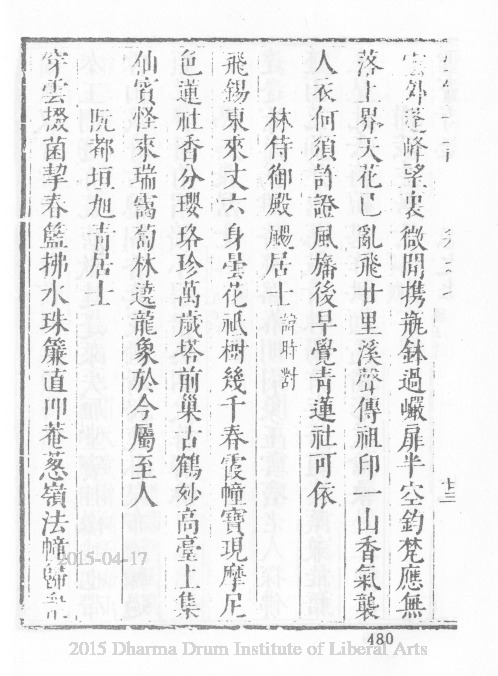 峰望裏微聞携瓶鉢過巖扉半空鈞梵應無
落上界天花已亂飛廿里溪聲傳祖印一山香氣襲
人衣何須許證風旛後早覺青蓮社可依
林侍御殿颺居士諱時對
飛錫東來丈六身曇花祇樹幾千春霞幢寶現摩尼
色蓮社香分瓔珞珍萬歲塔前巢古鶴妙高臺上集
仙賓怪來瑞靄蔔林遶龍象於今屬至人
阮都垣旭青居士
穿雲掇菌挈春籃拂水珠簾直叩菴葱嶺法幢歸
廿三
480
2015-04-17
2015 Dharma Drum Institute of Liberal Arts